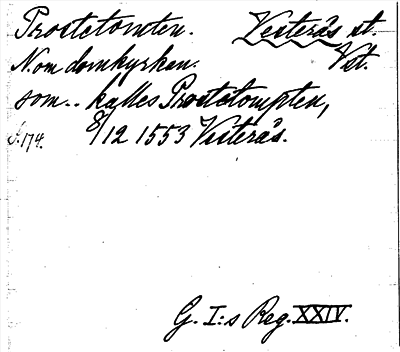 Prostetomten. Vesterås st.
N. om domkyrkan. Vst.
som.. kalles Prostetompten,
s. 174. 8/12 1553 Vesterås.
G. I:s Reg. XXIV.